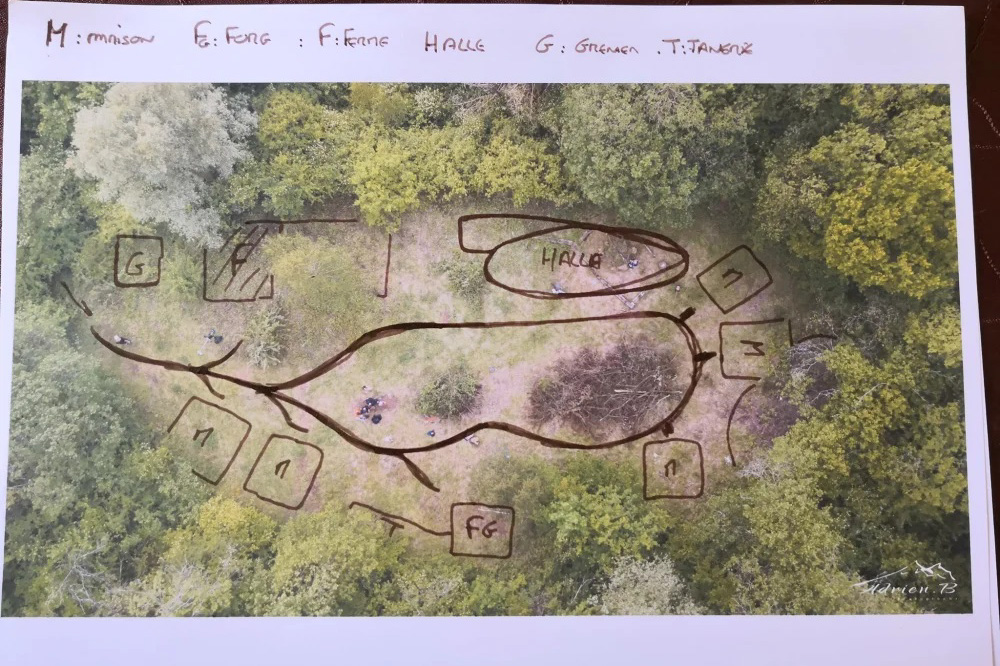 M : maison FG : FORG : F : FERME HALLE G : GRENIER . T : TANERIE
G
F
HALLE
M
M
M
M
M
T
FG
Adrien.B